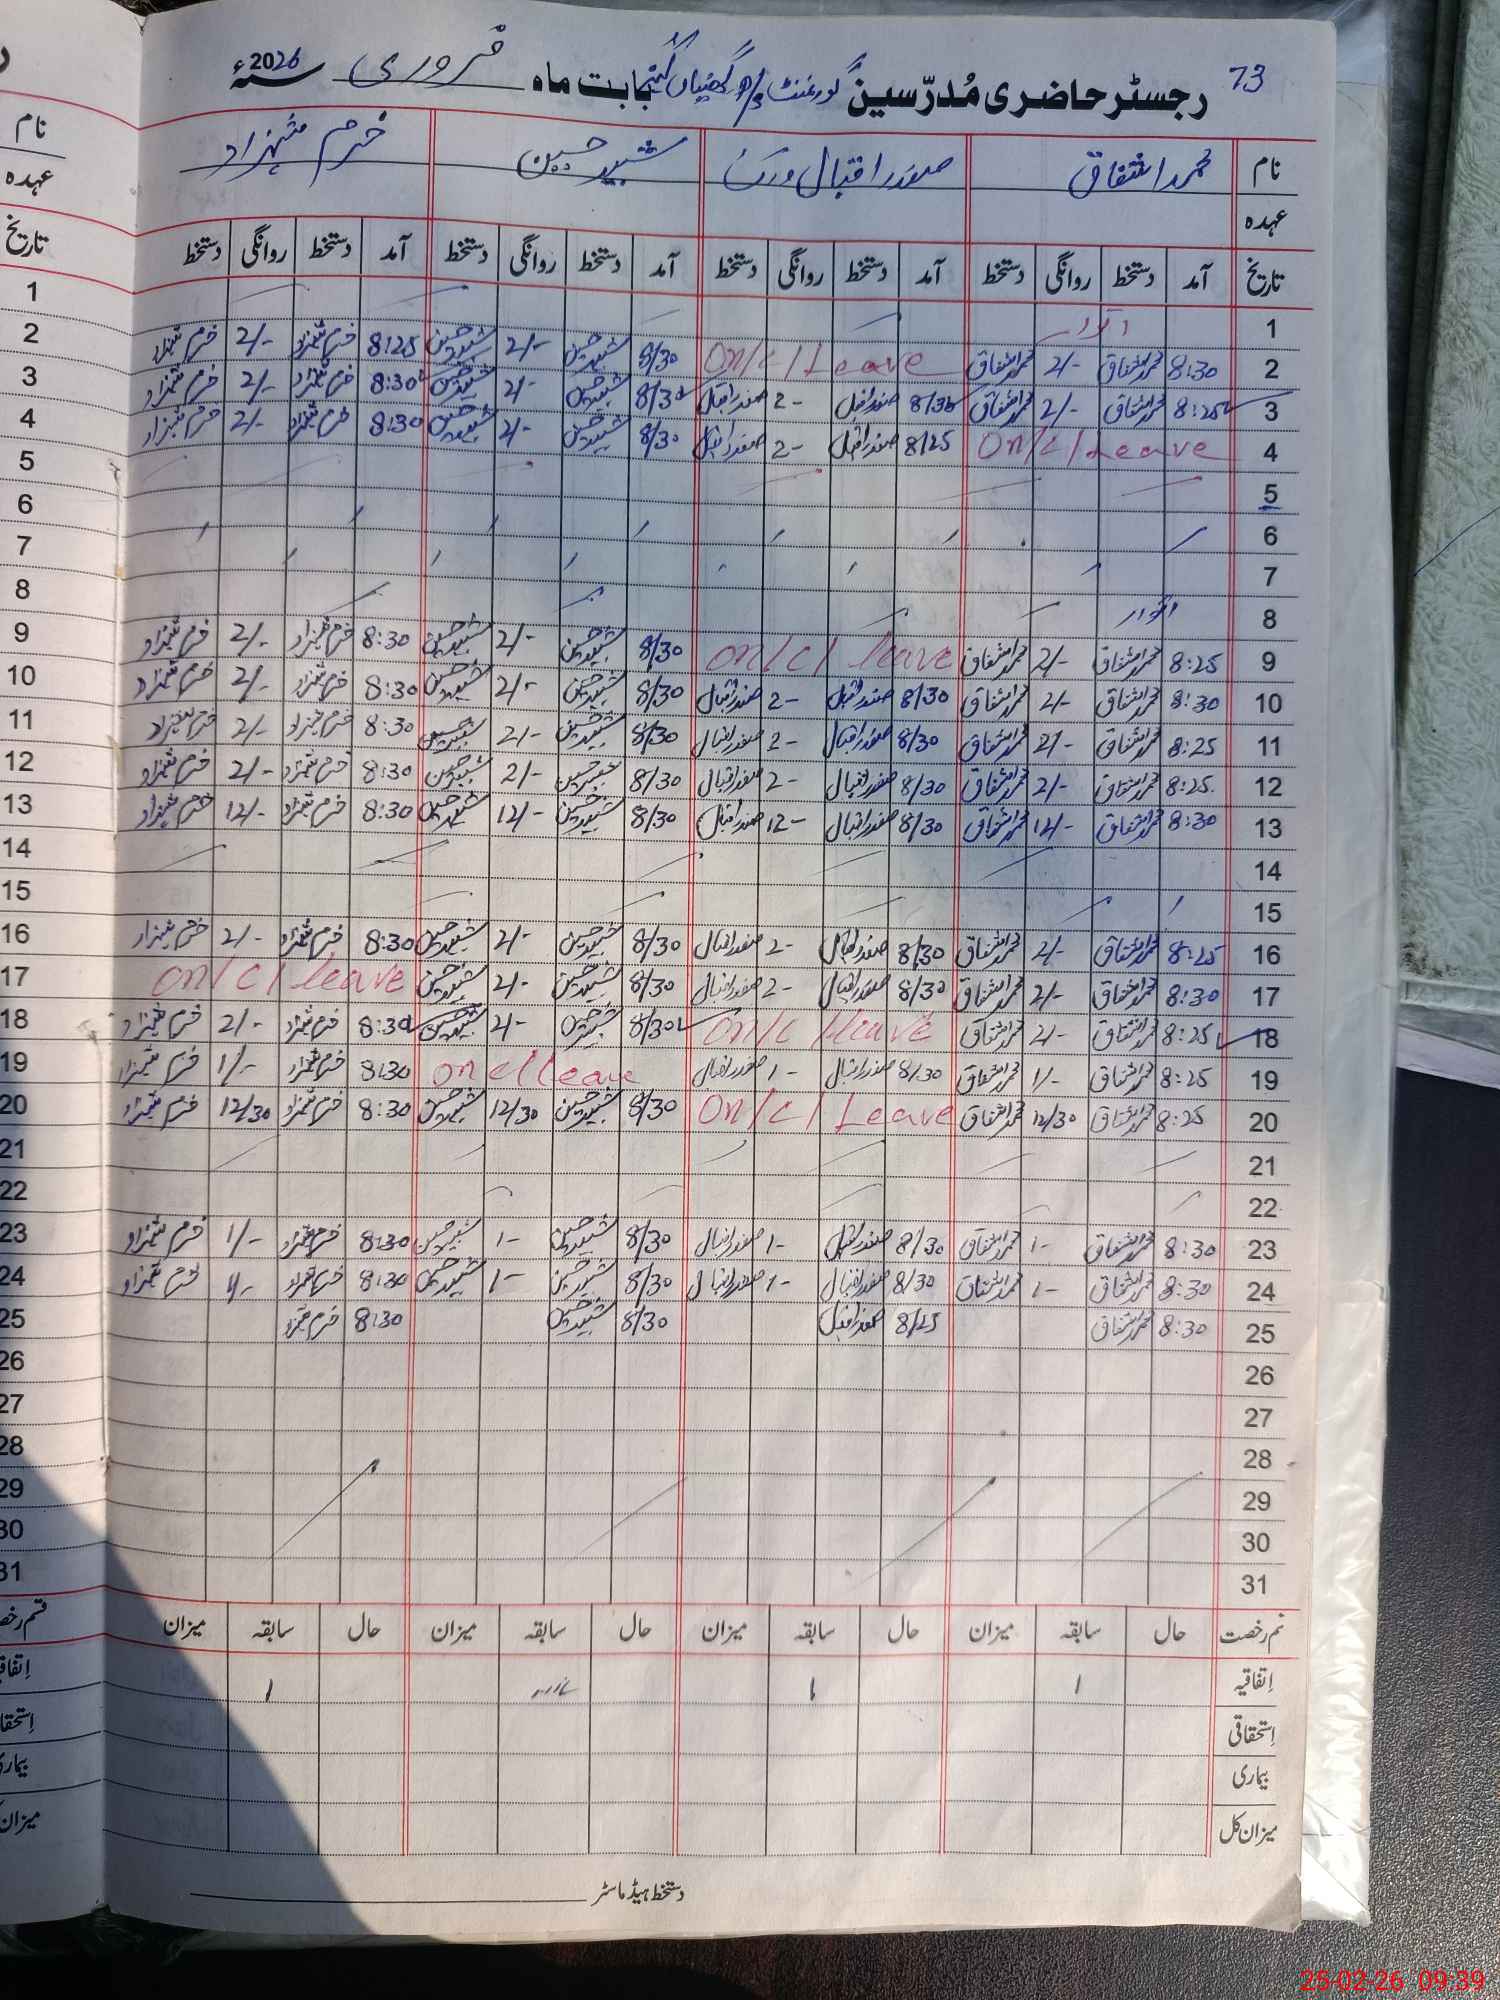 73
رجسٹر حاضری مُدرّسین گورنمنٹ بابت ماہ فروری سنہ 2026ء
نام محمد اشفاق صفدر اقبال ورک شبیر حسین خرم شہزاد
عہدہ
تاریخ آمد دستخط روانگی دستخط آمد دستخط روانگی دستخط آمد دستخط روانگی دستخط آمد دستخط روانگی دستخط
1 اتوار
2 8:30 محمد اشفاق 2/- محمد اشفاق On/c/Leave 8/30 شبیر حسین 2/- شبیر حسین 8:25 خرم شہزاد 2/- خرم شہزاد
3 8:25 محمد اشفاق 2/- محمد اشفاق 8/30 صفدر اقبال 2- صفدر اقبال 8/30 شبیر حسین 2/- شبیر حسین 8:30 خرم شہزاد 2/- خرم شہزاد
4 On/c/Leave 8/25 صفدر اقبال 2- صفدر اقبال 8/30 شبیر حسین 2/- شبیر حسین 8:30 خرم شہزاد 2/- خرم شہزاد
5
6
7
8 اتوار
9 8:25 محمد اشفاق 2/- محمد اشفاق on/c/leave 8/30 شبیر حسین 2/- شبیر حسین 8:30 خرم شہزاد 2/- خرم شہزاد
10 8:30 محمد اشفاق 2/- محمد اشفاق 8/30 صفدر اقبال 2- صفدر اقبال 8/30 شبیر حسین 2/- شبیر حسین 8:30 خرم شہزاد 2/- خرم شہزاد
11 8:25 محمد اشفاق 2/- محمد اشفاق 8/30 صفدر اقبال 2- صفدر اقبال 8/30 شبیر حسین 2/- شبیر حسین 8:30 خرم شہزاد 2/- خرم شہزاد
12 8:25 محمد اشفاق 2/- محمد اشفاق 8/30 صفدر اقبال 2- صفدر اقبال 8/30 شبیر حسین 2/- شبیر حسین 8:30 خرم شہزاد 2/- خرم شہزاد
13 8:30 محمد اشفاق 12/- محمد اشفاق 8/30 صفدر اقبال 12- صفدر اقبال 8/30 شبیر حسین 12/- شبیر حسین 8:30 خرم شہزاد 12/- خرم شہزاد
14
15
16 8:25 محمد اشفاق 2/- محمد اشفاق 8/30 صفدر اقبال 2- صفدر اقبال 8/30 شبیر حسین 2/- شبیر حسین 8:30 خرم شہزاد 2/- خرم شہزاد
17 8:30 محمد اشفاق 2/- محمد اشفاق 8/30 صفدر اقبال 2- صفدر اقبال 8/30 شبیر حسین 2/- شبیر حسین on/c/leave
18 8:25 محمد اشفاق 2/- محمد اشفاق on/c/leave 8/30 شبیر حسین 2/- شبیر حسین 8:30 خرم شہزاد 2/- خرم شہزاد
19 8:25 محمد اشفاق 1/- محمد اشفاق 8/30 صفدر اقبال 1- صفدر اقبال on c/leave 8:30 خرم شہزاد 1/- خرم شہزاد
20 8:25 محمد اشفاق 12/30 محمد اشفاق On/c/Leave 8/30 شبیر حسین 12/30 شبیر حسین 8:30 خرم شہزاد 12/30 خرم شہزاد
21
22
23 8:30 محمد اشفاق 1- محمد اشفاق 8/30 صفدر اقبال 1- صفدر اقبال 8/30 شبیر حسین 1- شبیر حسین 8:30 خرم شہزاد 1/- خرم شہزاد
24 8:30 محمد اشفاق 1- محمد اشفاق 8/30 صفدر اقبال 1- صفدر اقبال 8/30 شبیر حسین 1- شبیر حسین 8:30 خرم شہزاد 1/- خرم شہزاد
25 8:30 محمد اشفاق 8/25 صفدر اقبال 8/30 شبیر حسین 8:30 خرم شہزاد
26
27
28
29
30
31
حال سابقہ میزان حال سابقہ میزان حال سابقہ میزان حال سابقہ میزان
اِتفاقیہ 1 1 1
اِستحقاقی
بیماری
میزان کل
دستخط ہیڈ ماسٹر
نام
عہدہ
تاریخ
1
2
3
4
5
6
7
8
9
10
11
12
13
14
15
16
17
18
19
20
21
22
23
24
25
26
27
28
29
30
31
25-02-26 09:39